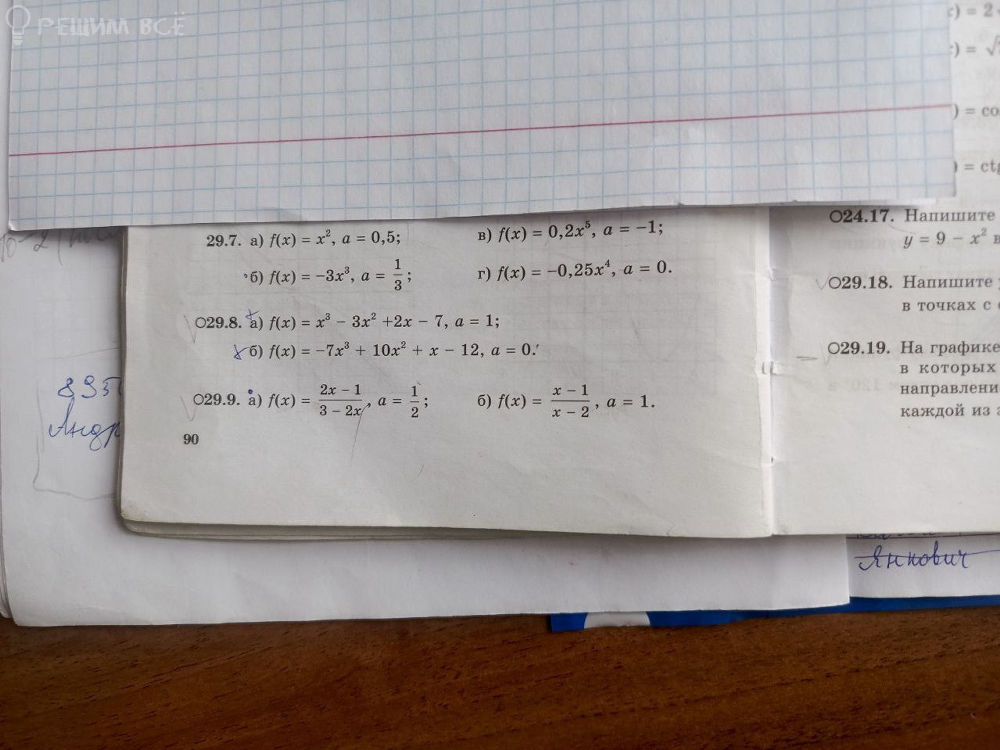 РЕШИМ ВСЁ
29.7. а) f(x) = x², a = 0,5;
в) f(x) = 0,2x⁵, a = −1;
б) f(x) = −3x³, a = 1/3;
г) f(x) = −0,25x⁴, a = 0.
О29.8. а) f(x) = x³ − 3x² +2x − 7, a = 1;
б) f(x) = −7x³ + 10x² + x − 12, a = 0.
О29.9. а) f(x) = (2x − 1)/(3 − 2x), a = 1/2;
б) f(x) = (x − 1)/(x − 2), a = 1.
90
) = 2
) = √
) = co
) = ctg
О24.17. Напишите
y = 9 − x² в
О29.18. Напишите
в точках с
О29.19. На графике
в которых
направлени
каждой из
895
Андр
Янкович